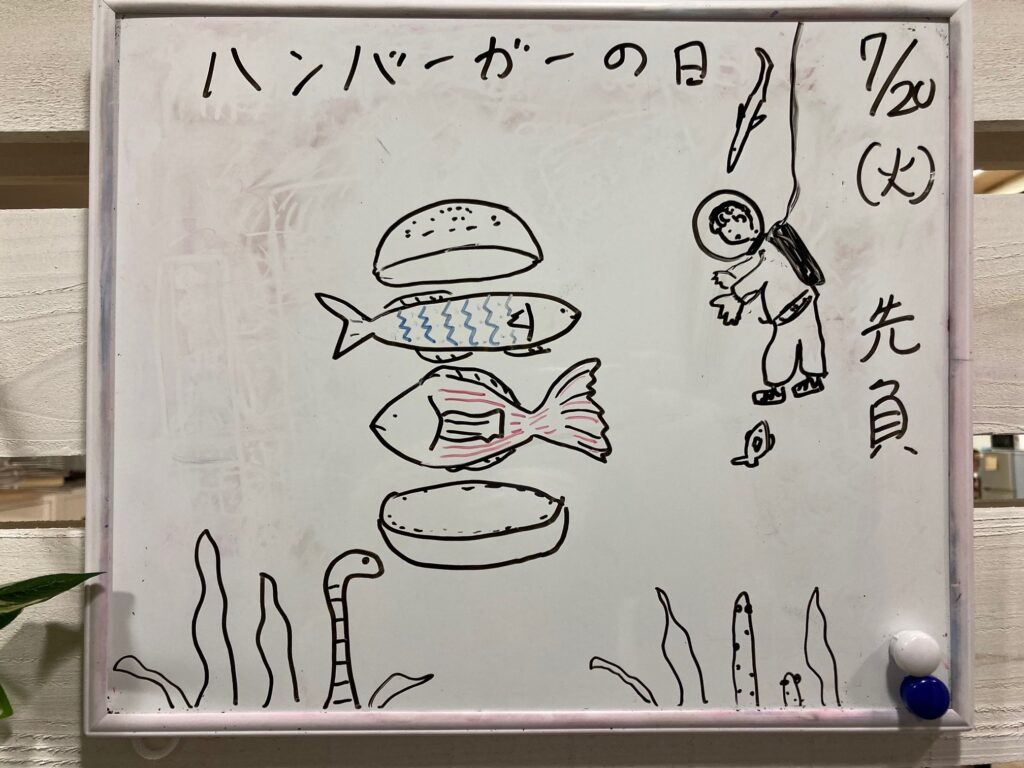 ハンバーガーの日
7/20
(火)
先負